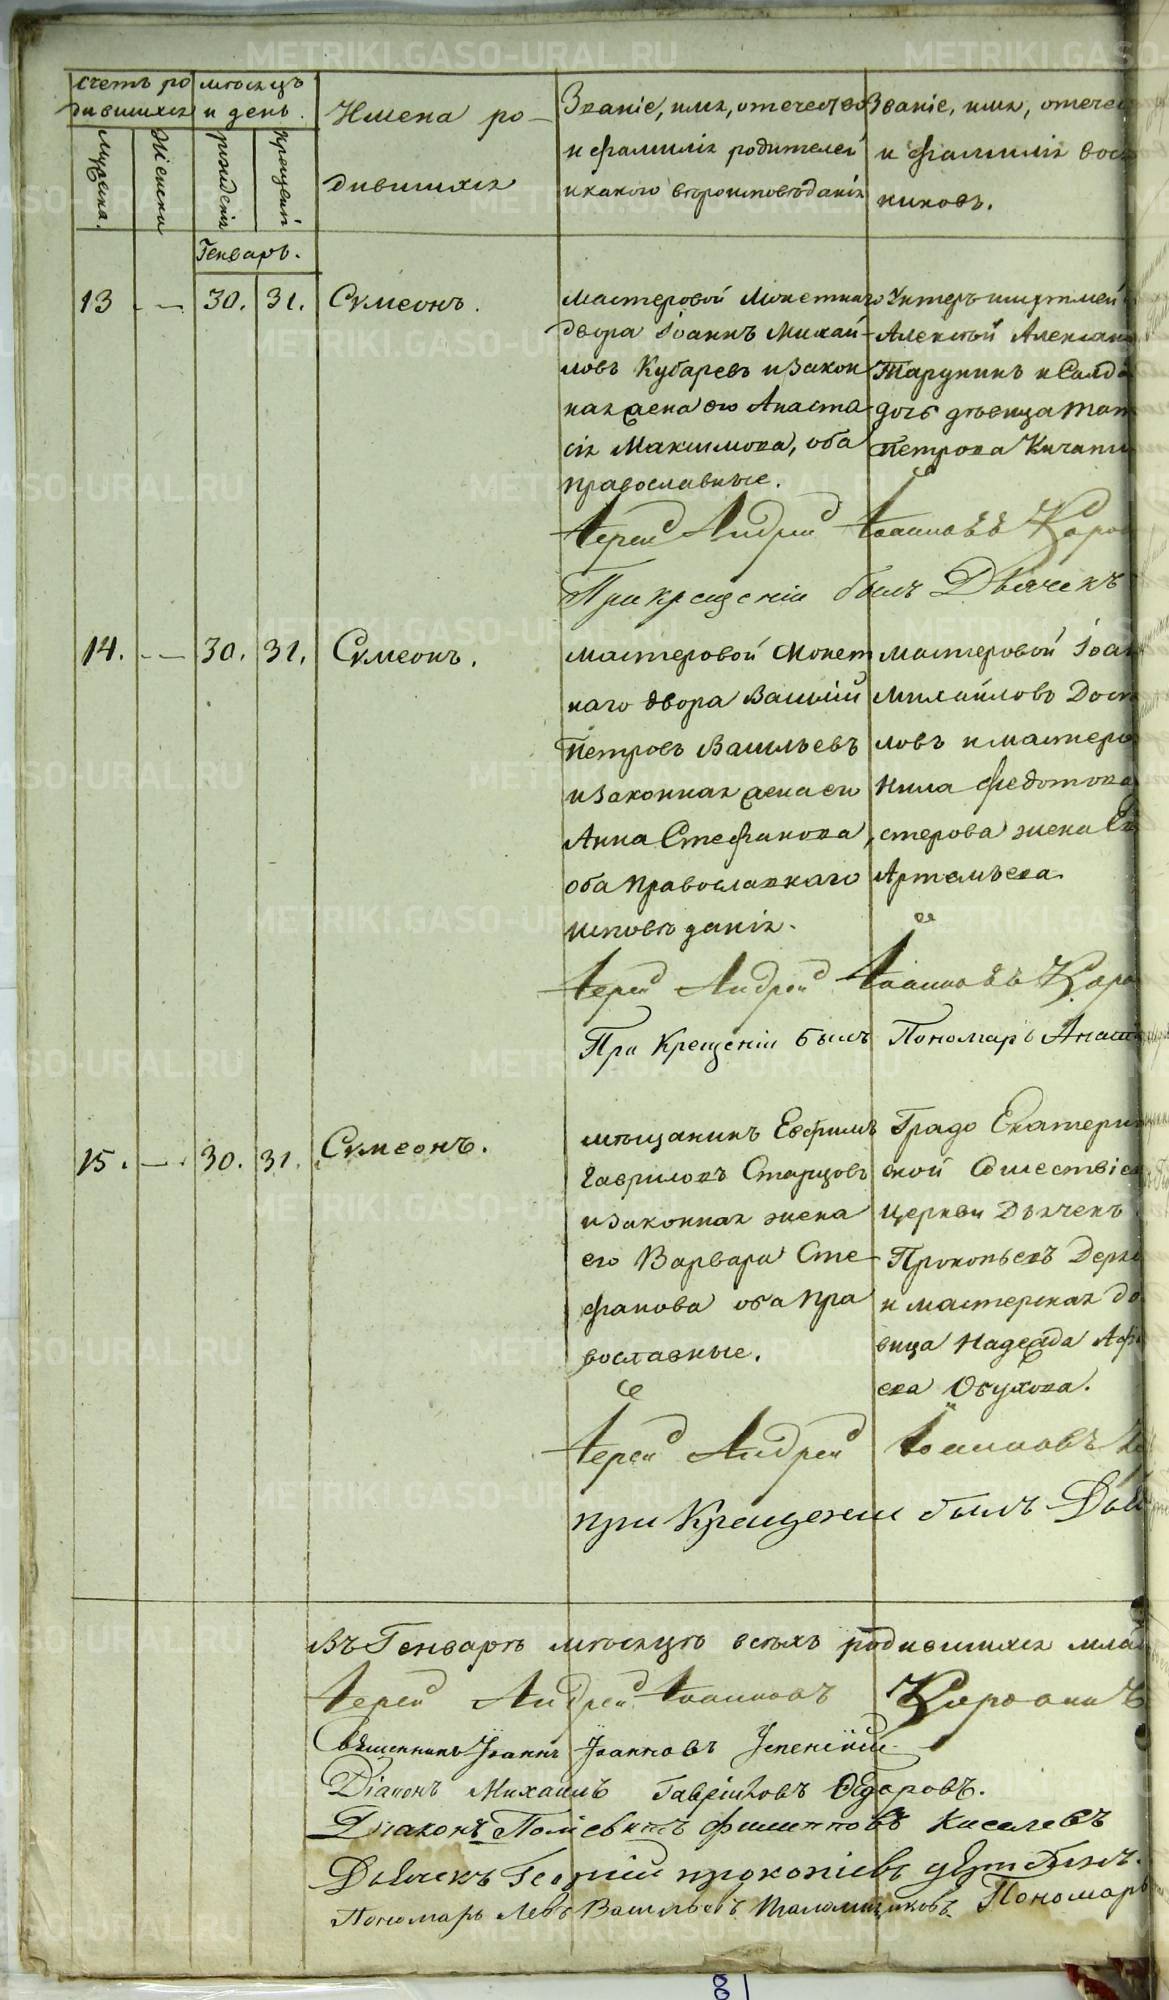 Счетъ ро
дившихся
Мужска.
Женски
мѣсяцъ
и день.
рожденія
крещенія
Генварь.
Имена ро-
дившихся
Званіе, имя, отечество
и фамилія родителей
и какого вѣроисповѣданія
Званіе, имя, отечес
и фамилія вос
никовъ.
13 - — 30. 31. Сѵмеонъ.
мастеровой Монетнаго
двора Іоаннъ Михай-
ловъ Кубаревъ и закон
ная жена его Анаста-
сія Максимова, оба
православные.
Унтеръ шихтмей
Алексѣй Алексан
Тарунинъ и Солда
дочь дѣвица Тат
Петрова Кичаги
Іерей Андрей Іоанновъ Коров
При крещеніи былъ Дьячекъ
14. - — 30. 31. Сѵмеонъ.
мастеровой Монет
наго двора Василій
Петровъ Васильевъ
и законная жена его
Анна Стефанова,
оба православнаго
исповѣданія.
мастеровой Іоан
Михайловъ Дост
ловъ и мастеро
Нила Федотова
стерова жена Ев
Артемьева.
Іерей Андрей Іоанновъ Коро
При Крещеніи былъ Пономарь Анаш
15. - — 30. 31. Сѵмеонъ.
мѣщанинъ Евфимъ
Гавриловъ Старцовъ
и законная жена
его Варвара Сте
фанова оба пра
вославные.
Градо Екатерин
ской Сошествіев
церкви Дьячекъ
Прокопьевъ Держ
и мастерская до
вица Надежда Аф
ева Обухова.
Іерей Андрей Іоанновъ Ко
при Крещении былъ Дья
Въ Генварѣ мѣсяцѣ всѣхъ родившихся мла
Іерей Андрей Іоанновъ Коровинъ
Священникъ Іоаннъ Іоанновъ Успенскій
Діаконъ Михаилъ Гавріиловъ Ѳедоровъ.
Диаконъ Полиевктъ Филипповъ Киселевъ
Дьячекъ Георгій прокопіевъ
Пономарь Левъ Васильевъ Пономарь
81
METRIKI.GASO-URAL.RU